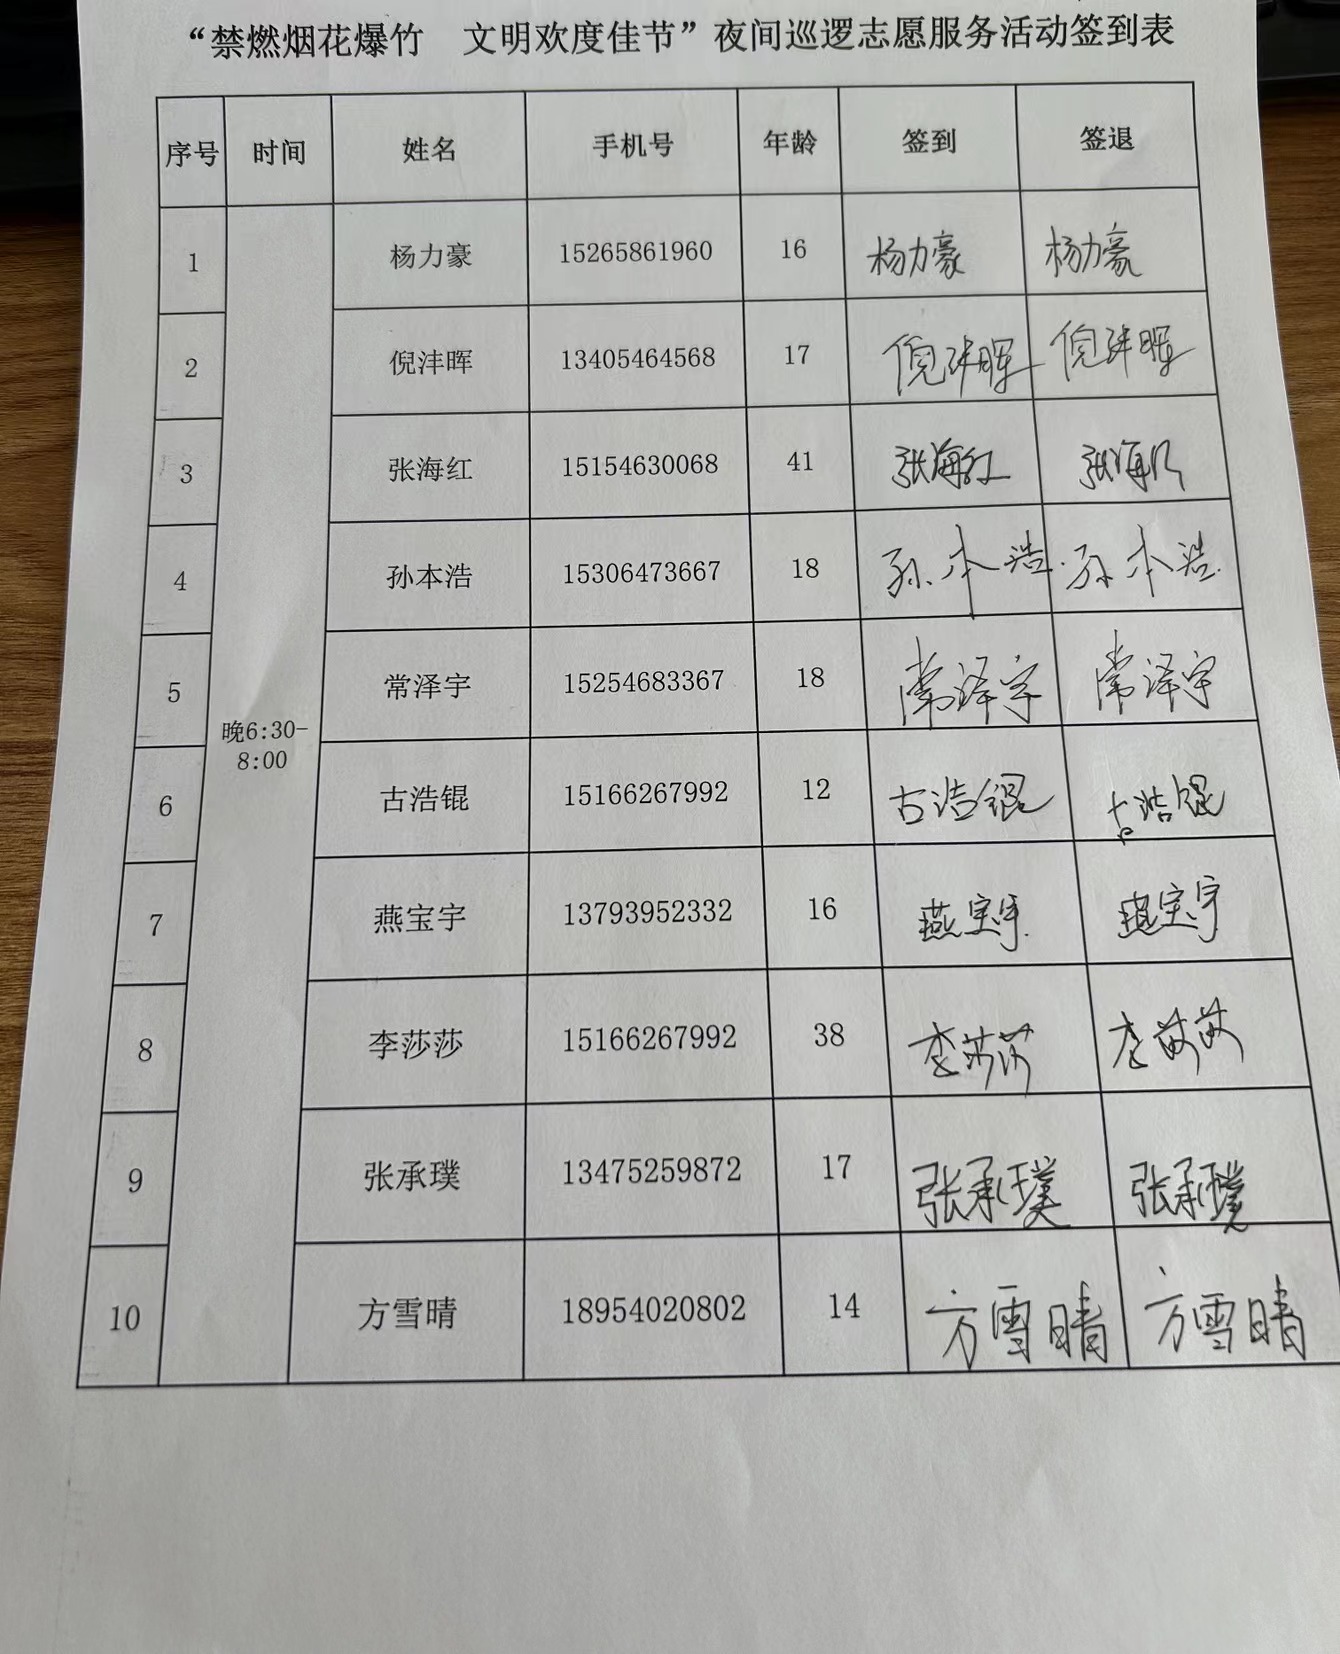 “禁燃烟花爆竹 文明欢度佳节”夜间巡逻志愿服务活动签到表
序号 时间 姓名 手机号 年龄 签到 签退
1 杨力豪 15265861960 16 杨力豪 杨力豪
2 倪沣晖 13405464568 17 倪沣晖 倪沣晖
3 张海红 15154630068 41 张海红 张海红
4 孙本浩 15306473667 18 孙本浩 孙本浩
5 常泽宇 15254683367 18 常泽宇 常泽宇
晚6:30-
8:00
6 古浩锟 15166267992 12 古浩锟 古浩锟
7 燕宝宇 13793952332 16 燕宝宇 燕宝宇
8 李莎莎 15166267992 38 李莎莎 李莎莎
9 张承璞 13475259872 17 张承璞 张承璞
10 方雪晴 18954020802 14 方雪晴 方雪晴